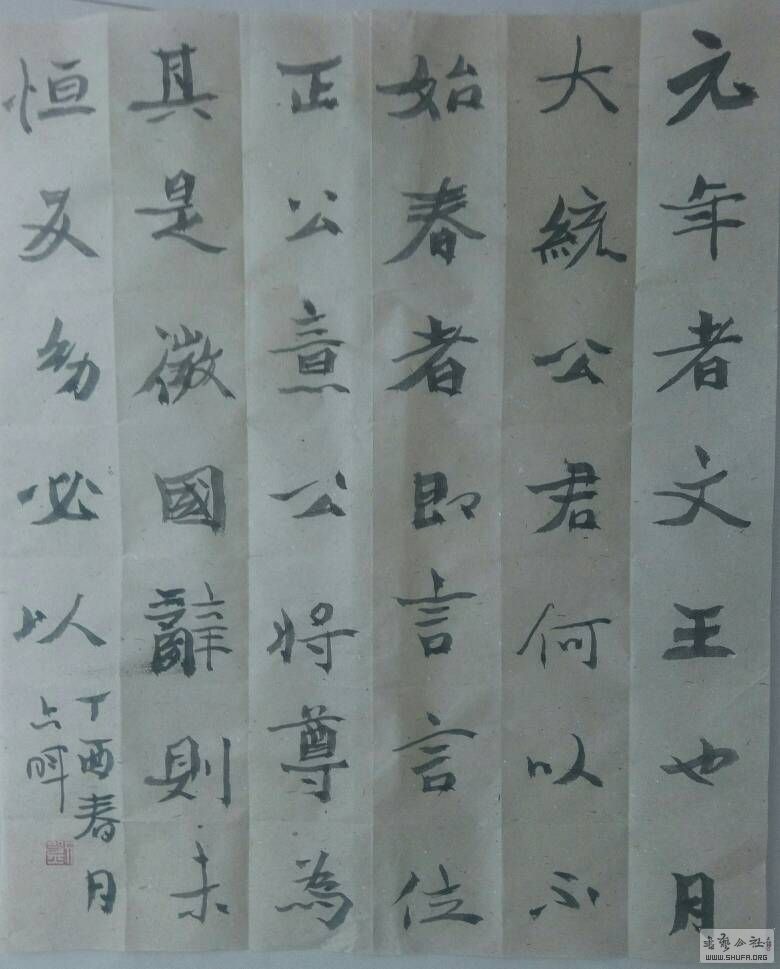 元年者文王也月
大統公君何以不
始春者即言言位
正公意公將尊為
其是微國辭則未
恒又幼必以
丁酉春月
WWW.SHUFA.ORG